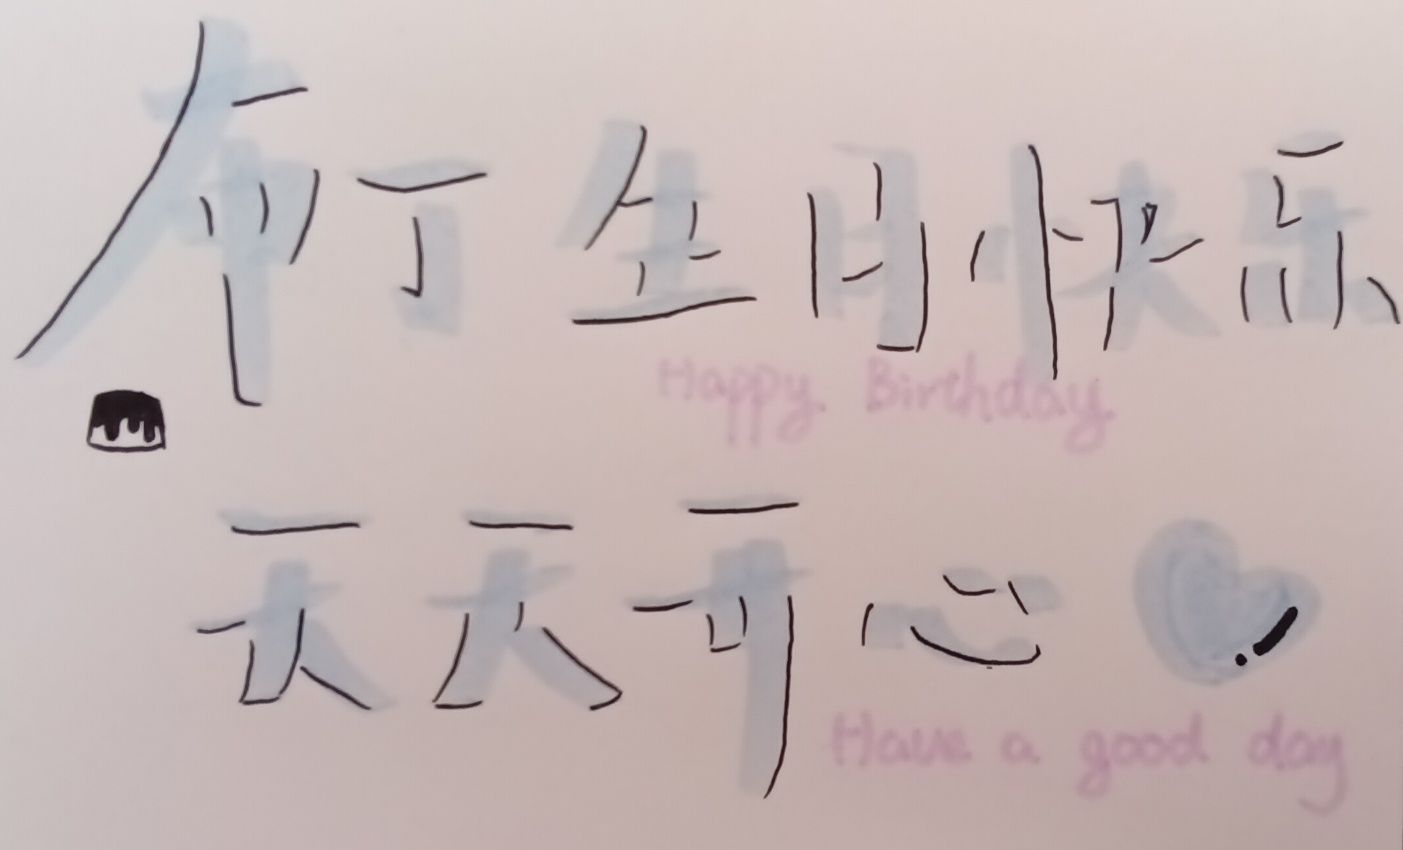 布丁生日快乐
Happy Birthday
天天开心
Have a good day